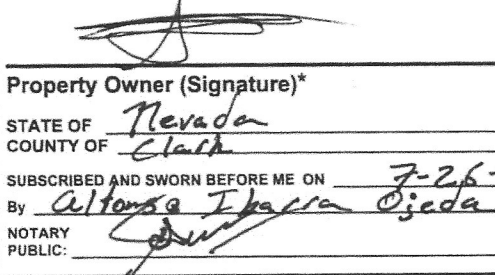 Property Owner (Signature)*
STATE OF Nevada
COUNTY OF Clark
SUBSCRIBED AND SWORN BEFORE ME ON 7-26-
By Alfonso Ibarra Ojeda
NOTARY
PUBLIC: